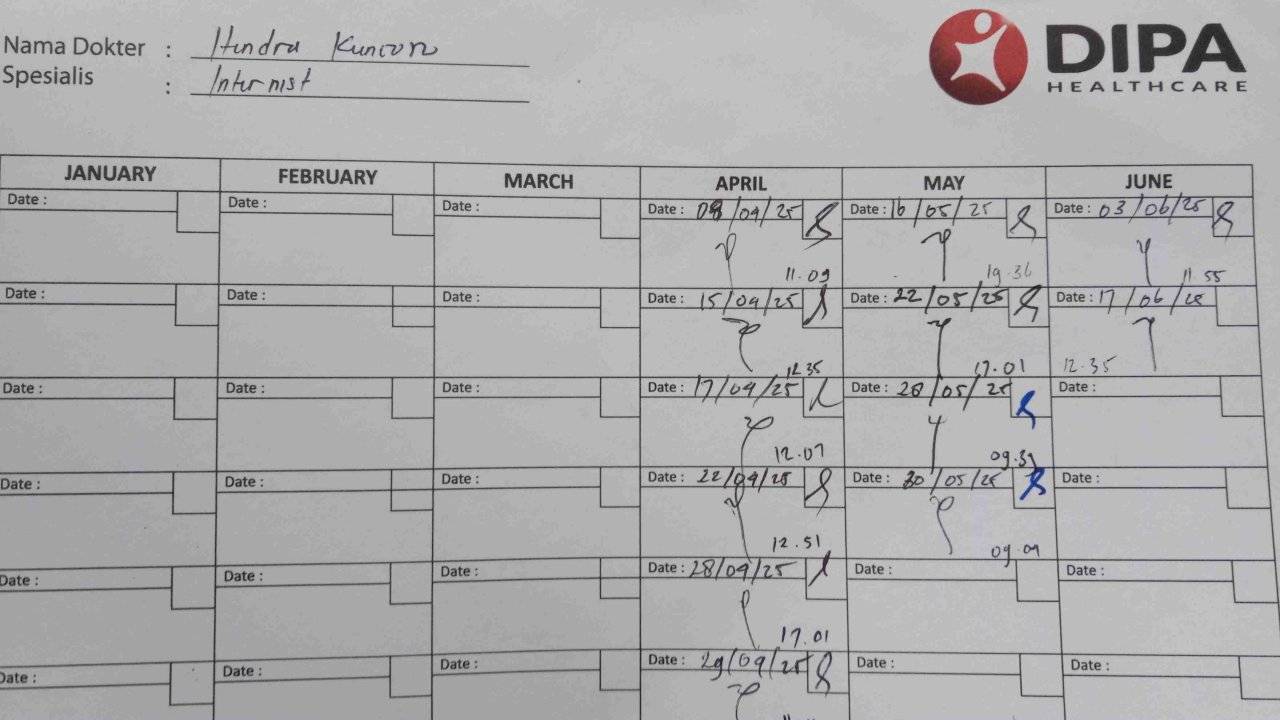 Nama Dokter : Hendra Kuncoro
Spesialis : Internist
DIPA
HEALTHCARE
JANUARY FEBRUARY MARCH APRIL MAY JUNE
Date : Date : Date : Date : 08/04/25 Date : 16/05/25 Date : 03/06/25
11.09 19.36 11.55
Date : Date : Date : Date : 15/04/25 Date : 22/05/25 Date : 17/06/25
12.35 17.01 12.35
Date : Date : Date : Date : 17/04/25 Date : 28/05/25 Date :
12.07 09.37
Date : Date : Date : Date : 22/04/25 Date : 30/05/25 Date :
12.51 09.09
Date : Date : Date : Date : 28/04/25 Date : Date :
17.01
Date : Date : Date : Date : 29/04/25 Date : Date :